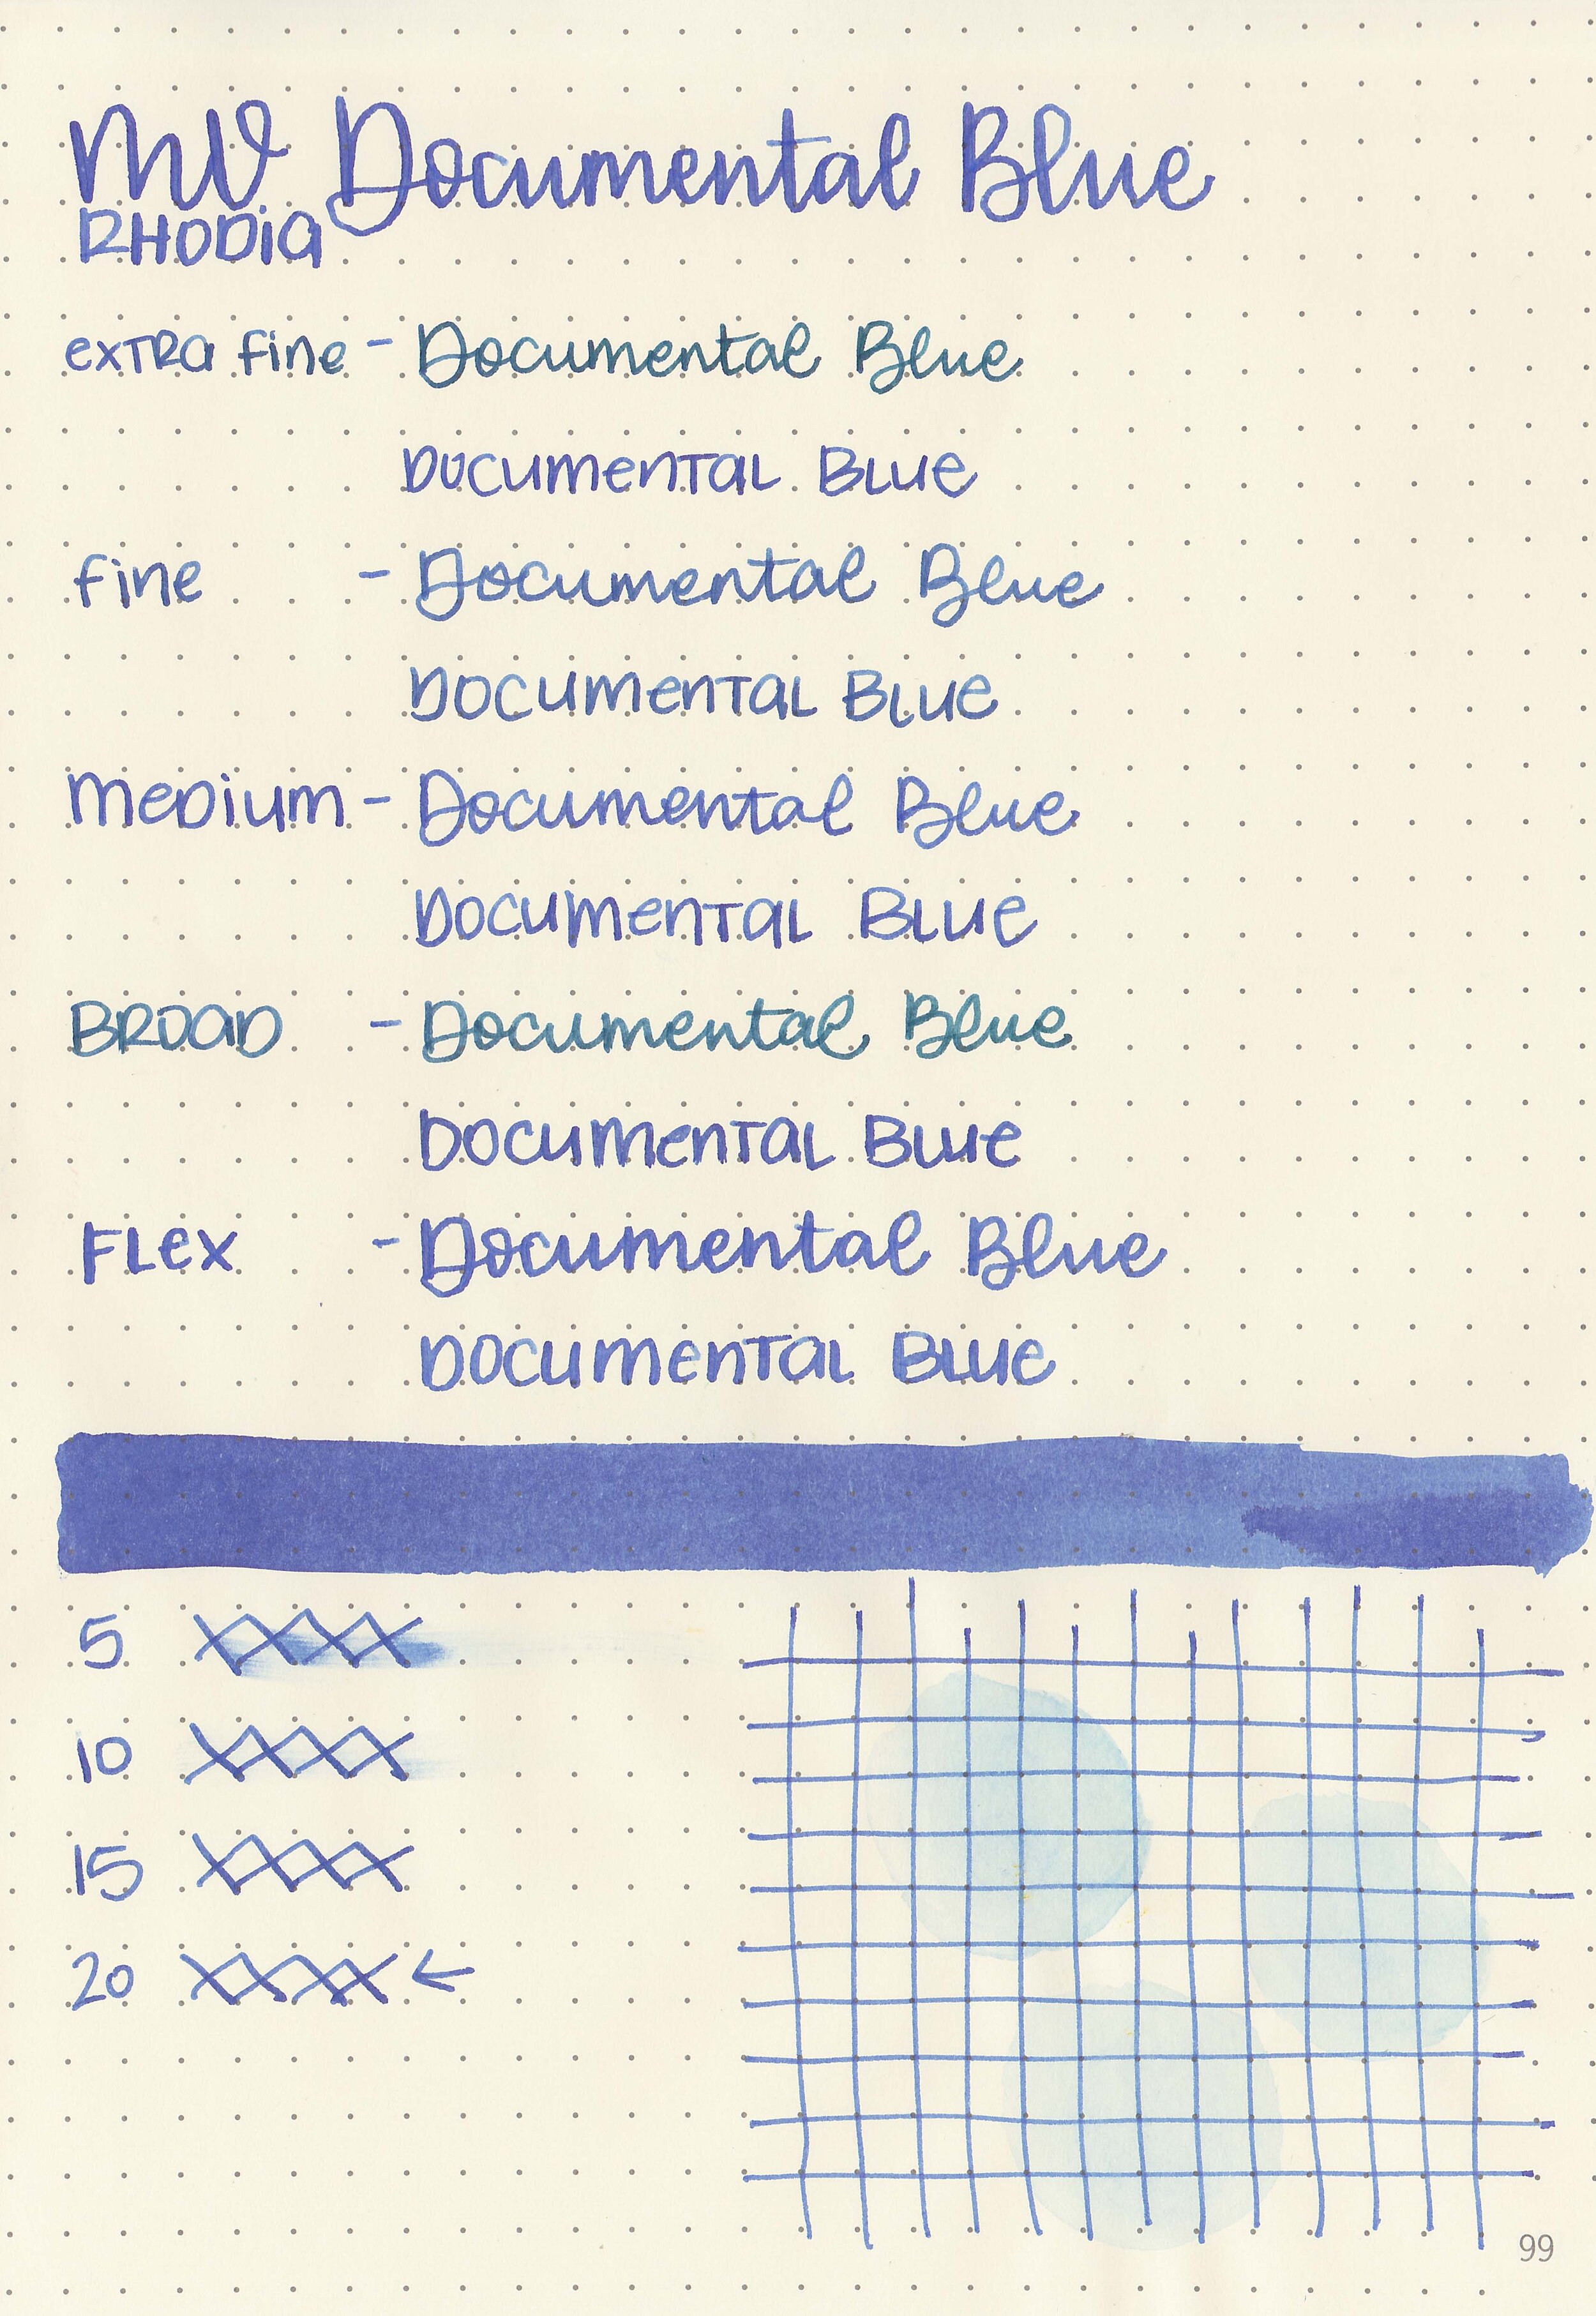 MV Documental Blue
RHODIA
extra fine - Documental Blue
Documental Blue
fine - Documental Blue
Documental Blue
medium - Documental Blue
Documental Blue
BROAD - Documental Blue
Documental Blue
FLex - Documental Blue
Documental Blue
5 XXXX
10 XXXX
15 XXXX
20 XXXX ←
99